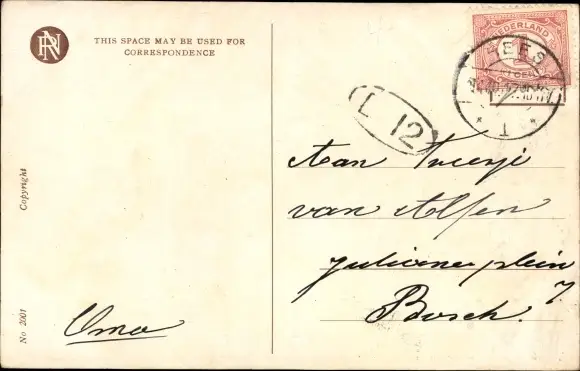 THIS SPACE MAY BE USED FOR
CORRESPONDENCE
NEDERLAND
1
EES
1
L 12
Aan Treesje
van Alfen
Julianaplein 7
Bosch.
Oma
Copyright
No 2001